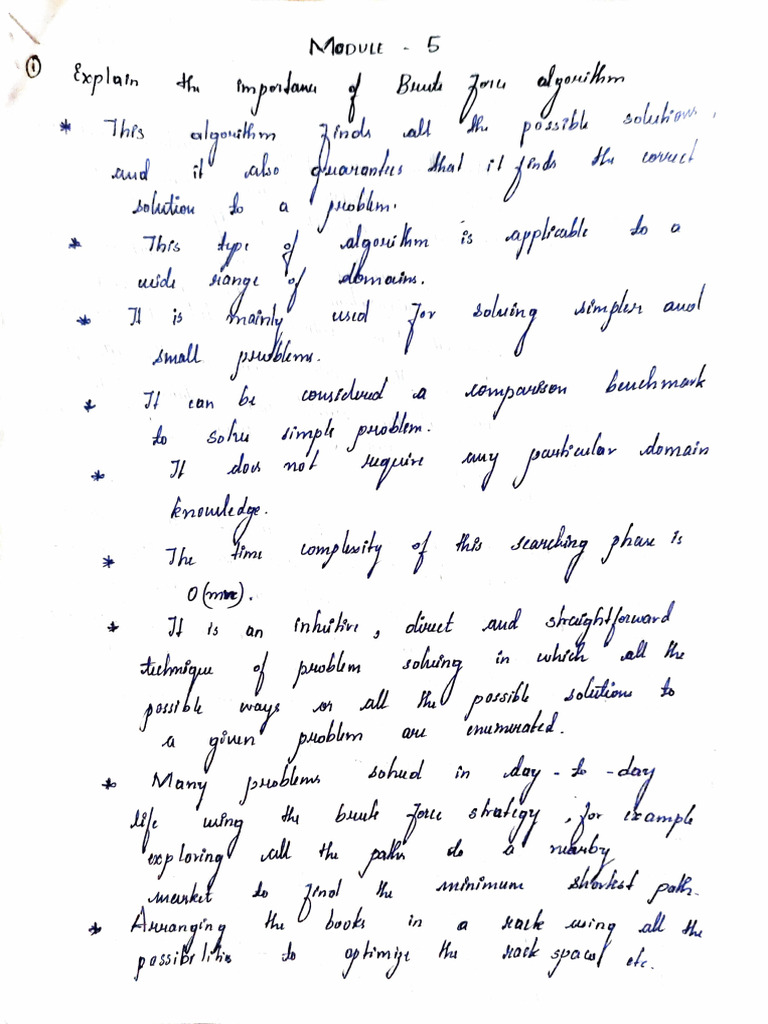 MODULE - 5
① Explain the importance of Brute force algorithm
* This algorithm finds all the possible solutions,
and it also guarantees that it finds the correct
solution to a problem.
* This type of algorithm is applicable to a
wide range of domains.
* It is mainly used for solving simpler and
small problems.
* It can be considered a comparison benchmark
to solve simple problem.
* It does not require any particular domain
knowledge.
* The time complexity of this searching phase is
O(mn).
* It is an intuitive, direct and straightforward
technique of problem solving in which all the
possible ways or all the possible solutions to
a given problem are enumerated.
* Many problems solved in day-to-day
life using the brute force strategy, for example
exploring all the paths to a nearby
market to find the minimum shortest path.
* Arranging the books in a rack using all the
possibilities to optimize the rack spaces etc.